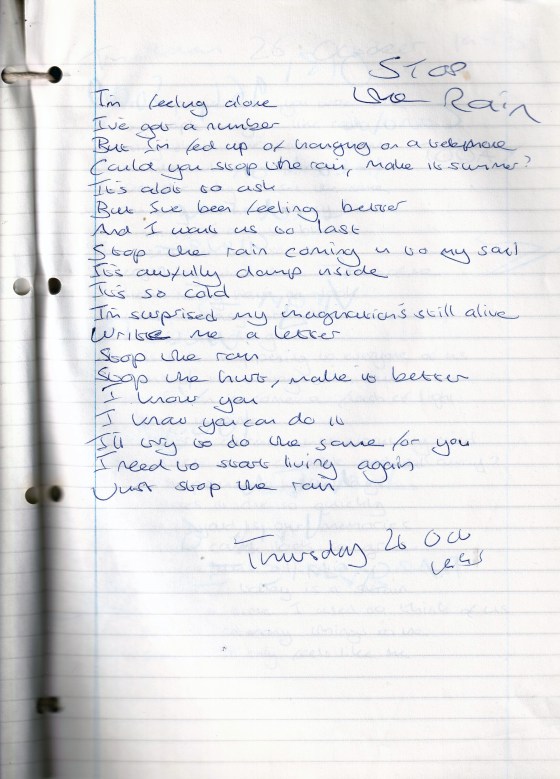 STOP
the Rain
I'm feeling alone
I've got a number
But I'm fed up of hanging on a telephone
Could you stop the rain, make it summer?
It's alot to ask
But I've been feeling better
And I want us to last
Stop the rain coming in to my soul
It's awfully damp inside
It's so cold
I'm surprised my imagination's still alive
Write me a letter
Stop the rain
Stop the hurt, make it better
I know you
I know you can do it
I'll try to do the same for you
I need to start living again
Just stop the rain
Thursday 26 Oct